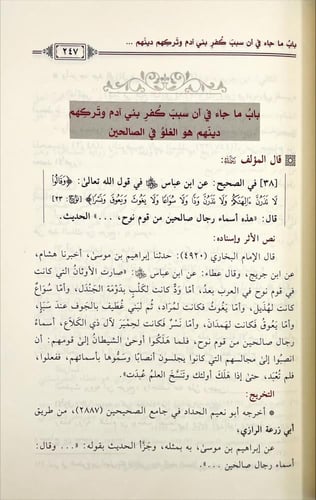 بابُ ما جاء في أن سببَ كُفرِ بني آدم وتَركِهم دينَهم ...
٢٤٧
بابُ ما جاء في أن سببَ كُفرِ بني آدم وتَركِهم
دينَهم هو الغلوُ في الصالحين
قال المؤلف رَحِمَهُ اللَّهُ:
[٣٨] في الصحيح: عن ابن عباس في قول الله تعالى: ﴿وَقَالُوا
لَا نَذَرُنَّ ءَالِهَتَكُمْ وَلَا نَذَرُنَّ وَدًّا وَلَا سُوَاعًا وَلَا يَغُوثَ وَيَعُوقَ وَنَسْرًا﴾ [نوح: ٢٣]
قال: «هذه أسماء رجال صالحين من قوم نوح، ...» الحديث.
نص الأثر وإسناده:
قال الإمام البخاري (٤٩٢٠): حدثنا إبراهيم بن موسىٰ، أخبرنا هشام،
عن ابن جريج، وقال عطاء: عن ابن عباس: «صارت الأوثانُ التي كانت
في قوم نوح في العرب بعدُ، أمَّا وَدٌّ كانت لكَلْبٍ بدَوْمَة الجَنْدَل، وأمَّا سُوَاعٌ
كانت لهُذيل، وأمَّا يَغُوثُ فكانت لمُرَاد، ثم لبَنِي غُطَيف بالجَوف عندَ سَبَإٍ،
وأمَّا يَعُوقُ فكانت لهَمدَانَ، وأمَّا نَسْرٌ فكانت لحِمْيَرَ لآل ذي الكَلَاع، أسماءُ
رجال صالحين من قوم نوح، فلما هَلَكُوا أوحىٰ الشيطانُ إلىٰ قومهم: أن
انصبُوا إلىٰ مجالسهم التي كانوا يجلسون أنصابًا وسَمُّوها بأسمائهم، ففعلوا،
فلم تُعْبَد، حتىٰ إذا هَلَكَ أولئكَ وتَنَسَّخَ العلمُ عُبدَت».
التخريج:
* أخرجه أبو نعيم الحداد في جامع الصحيحين (٢٨٨٧)، من طريق
أبي زرعة الرازي،
عن إبراهيم بن موسىٰ، به بمثله، وجَزَّأ الحديث بقوله: «... وقال: أسماء
رجال صالحين ...».